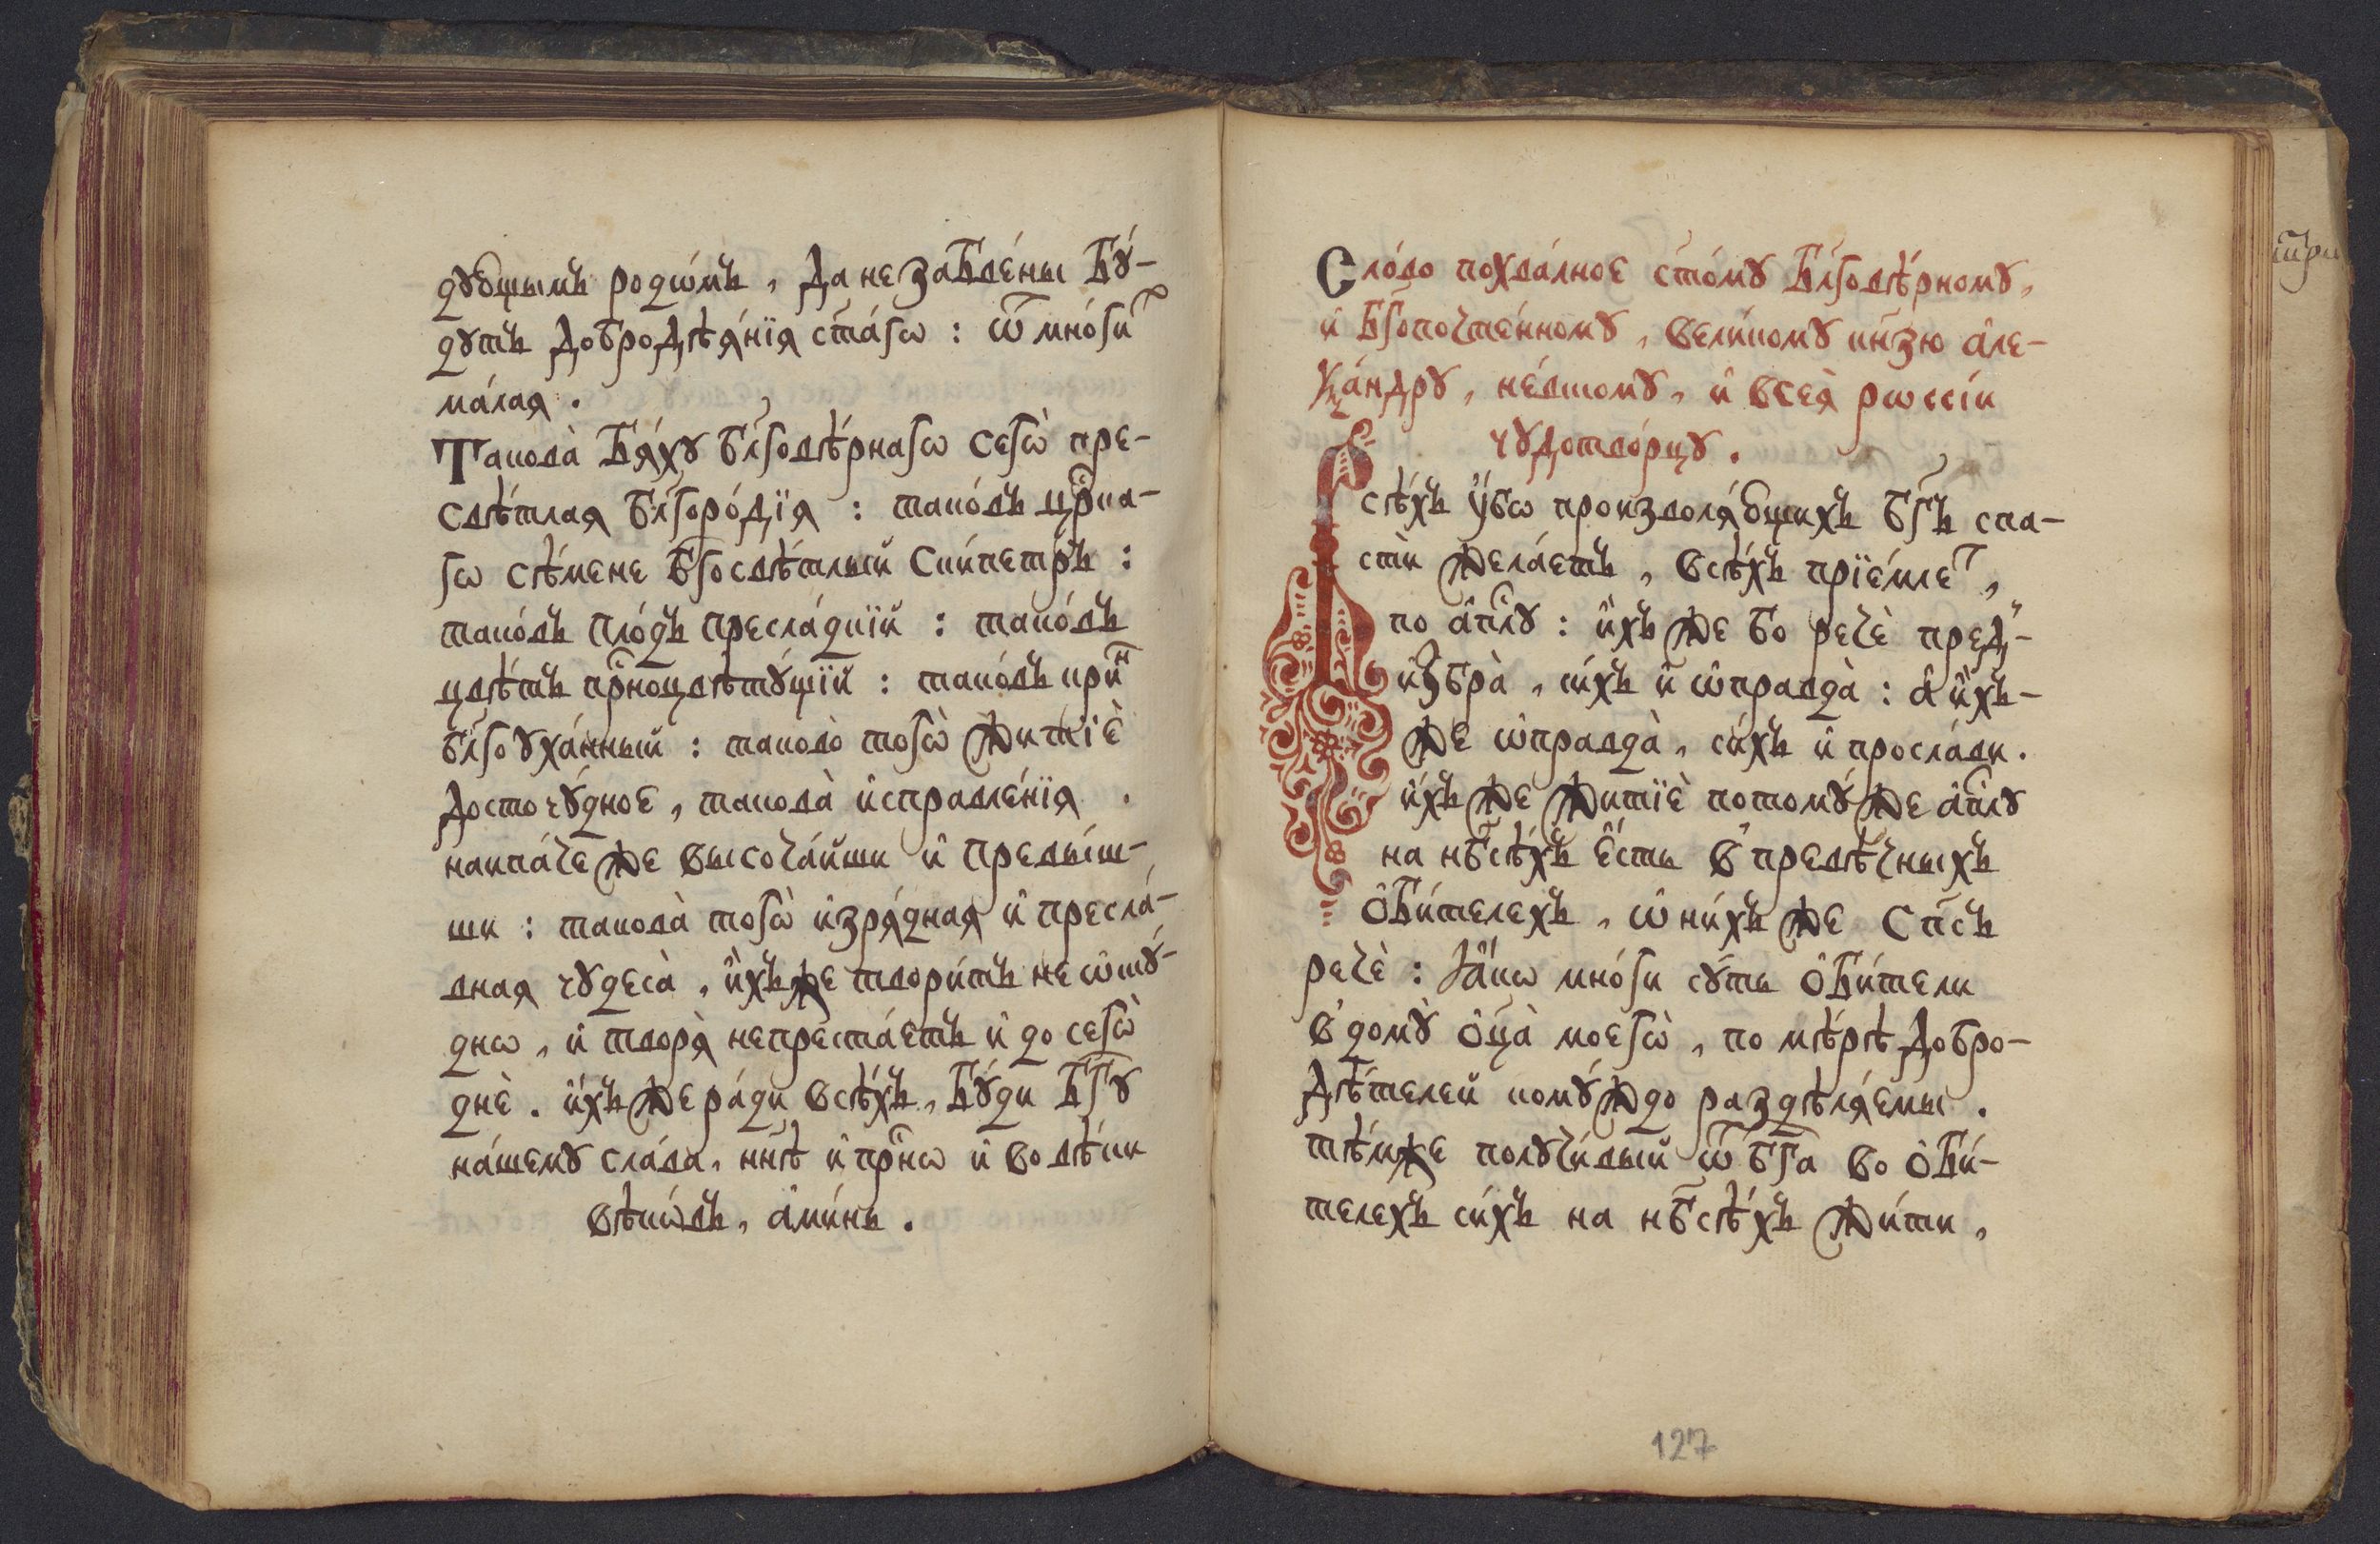 дꙋ́ющымъ родѡ́мъ, да не забве́ны бꙋ́-
дꙋтъ добродѣѧ́нїѧ ст҃а́гѡ : ѿ мно́ги
ма́лаѧ .
Такова̀ бѧ́хꙋ бл҃говѣ́рнагѡ сегѡ̀ пре-
свѣ́тлаѧ бл҃горо́дїѧ : тако́въ цр҃ка-
гѡ сѣ́мене бг҃освѣ́тлый ски́петръ :
тако́въ пло́дъ пресла́дкїй : тако́въ
цвѣ́тъ пр҃ноцвѣтꙋ́щїй : тако́въ кри́н
бл҃гоꙋха́нный : таково̀ тогѡ̀ житїѐ
досточꙋ́дное, такова̀ и҆справле́нїѧ .
наипа́че же высоча́йши и҆ превы́ш-
ши : такова̀ тогѡ̀ и҆зрѧ́днаѧ и҆ пресла́-
внаѧ чꙋдеса̀, и҆́хже твори́тъ не ѡ҆скꙋ́-
днѡ, и҆ творѧ̀ непреста́етъ и҆ до сегѡ̀
днѐ . и҆́хъ же ра́ди всѣ́хъ, бꙋ́ди бг҃ꙋ
на́шемꙋ сла́ва, нн҃ѣ и҆ пр҃нѡ и҆ во вѣ́ки
вѣкѡ́въ, а҆ми́нь .
Сло́во похва́лное ст҃о́мꙋ бл҃говѣ́рномꙋ,
и҆ бг҃опочте́нномꙋ, вели́комꙋ кн҃зю а҆ле-
ѯа́ндрꙋ, не́вскомꙋ, и҆ всеѧ̀ рѡссі́и
чꙋдотво́рцꙋ .
Всѣ́хъ ᲂу҆́бѡ произволѧ́ющихъ бг҃ъ спа-
стѝ жела́етъ, всѣ́хъ прїе́млет,
по а҆пⷭ҇лꙋ : и҆́хъ же бо речѐ пред̾-
и҆збра̀, си́хъ и҆ ѡ҆правда̀ : а҆ и҆́хъ-
же ѡ҆правда̀, си́хъ и҆ просла́ви .
и҆́хъ же житїѐ потомꙋ́ же а҆пⷭ҇лꙋ
на нб҃сѣ́хъ є҆́сть в̾ превѣ́чныхъ
ѻ҆би́телехъ, ѡ҆ ни́хъ же Сп҃съ
речѐ : Ꙗ҆́кѡ мно́ги сꙋ́ть ѻ҆би́тели
в̾ домꙋ̀ ѻ҆ц҃а̀ моегѡ̀, по мѣ́рѣ добро-
дѣ́телей комꙋ́ждо раздѣлѧ́емы .
тѣ́мже полꙋчи́вый ѿ бг҃а во ѻ҆би́-
телехъ си́хъ на нб҃сѣ́хъ жи́ти,
127